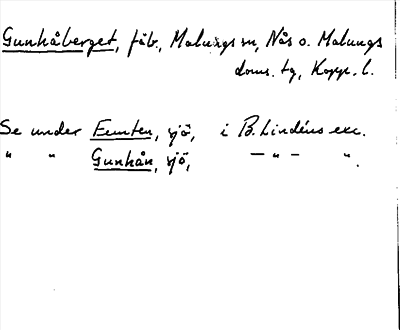 Gunhåberget, fäb., Malungs sn, Nås o. Malungs
doms. tg, Kopp. l.
Se under Eemten, sjö, i B. Lindéns exc.
" " Gunhån, sjö, — " — ".